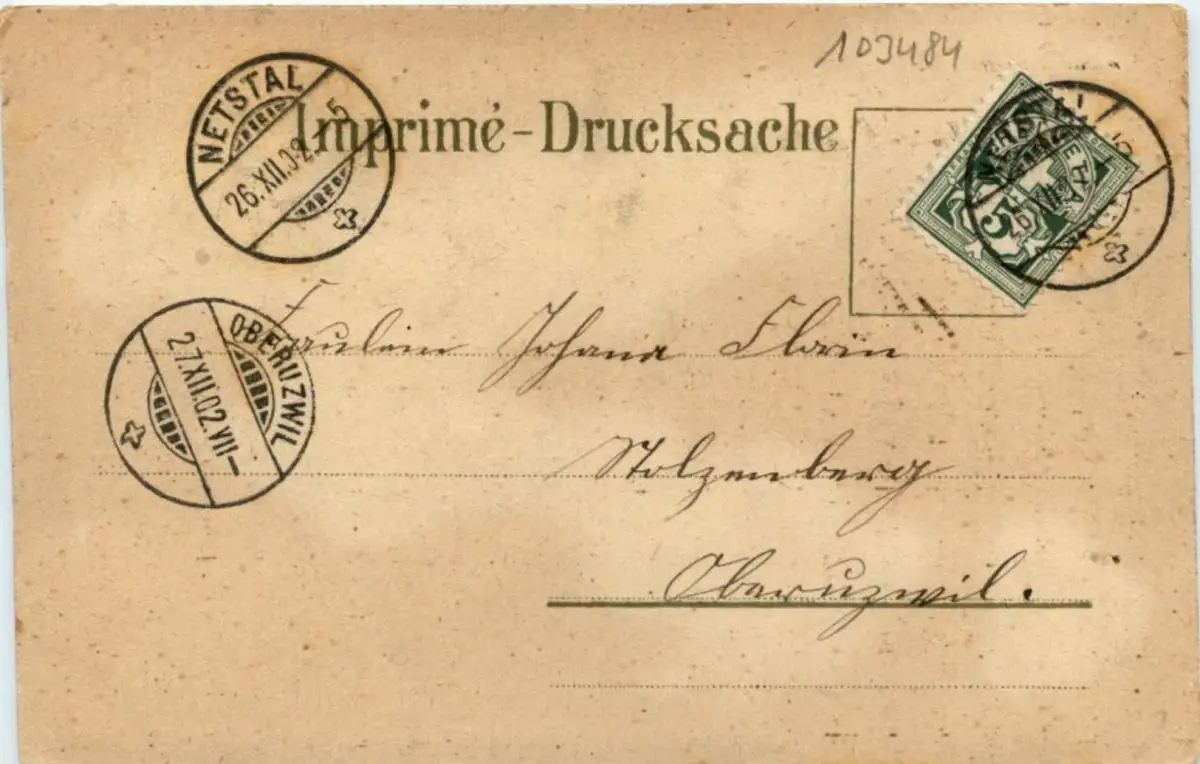 103484
NETSTAL
26.XII.02.-5
Imprimé-Drucksache
5
OBERUZWIL
27.XII.02.VII-
Fräulein Johana Florin
Stolzenberg
Oberuzwil.